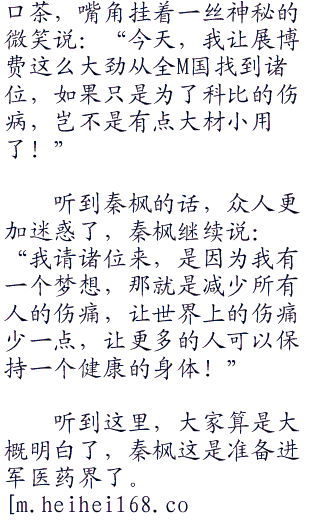 口茶，嘴角挂着一丝神秘的
微笑说：“今天，我让展博
费这么大劲从全M国找到诸
位，如果只是为了科比的伤
病，岂不是有点大材小用
了！”
听到秦枫的话，众人更
加迷惑了，秦枫继续说：
“我请诸位来，是因为我有
一个梦想，那就是减少所有
人的伤痛，让世界上的伤痛
少一点，让更多的人可以保
持一个健康的身体！”
听到这里，大家算是大
概明白了，秦枫这是准备进
军医药界了。
[m.heihei168.co